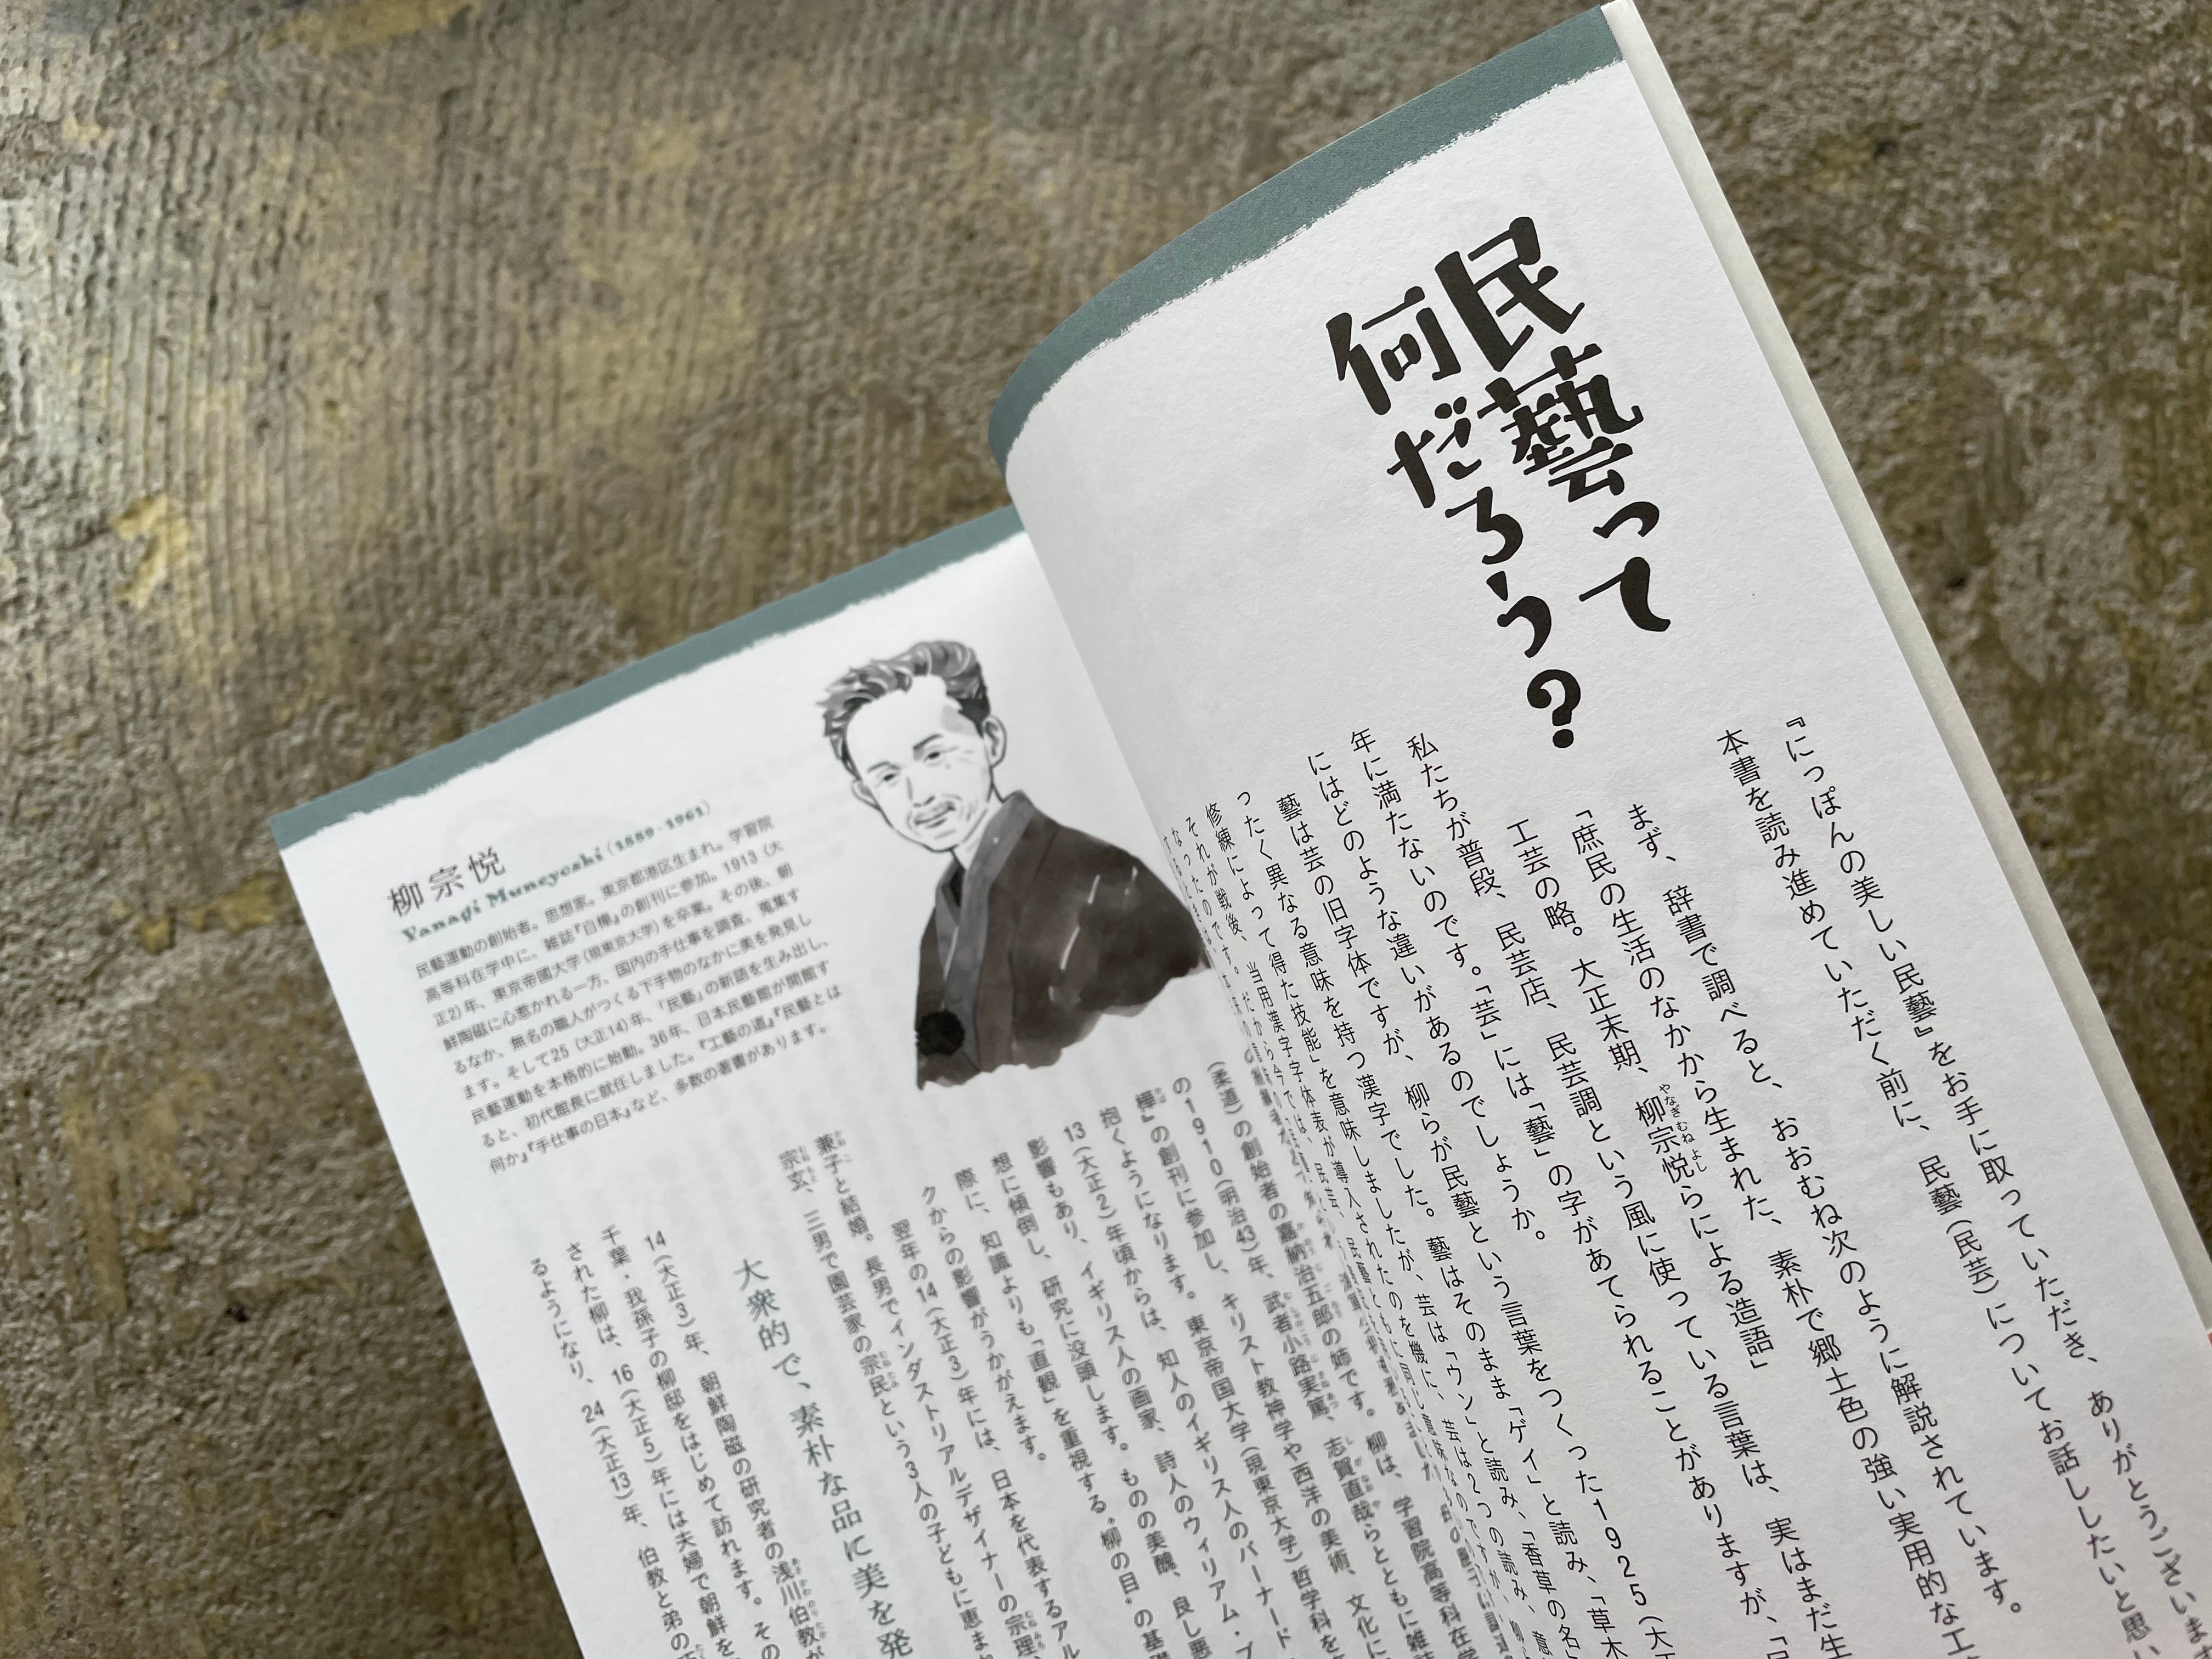 民藝って
何だろう?
『にっぽんの美しい民藝』をお手に取っていただき、ありがとうございます
本書を読み進めていただく前に、民藝(民芸)についてお話ししたいと思い
まず、辞書で調べると、おおむね次のように解説されています。
「庶民の生活のなかから生まれた、素朴で郷土色の強い実用的な工
工芸の略。大正末期、柳宗悦らによる造語」
やなぎむねよし
私たちが普段、民芸店、民芸調という風に使っている言葉は、実はまだ生
年に満たないのです。「芸」には「藝」の字があてられることがありますが、
にはどのような違いがあるのでしょうか。
藝は芸の旧字体ですが、柳らが民藝という言葉をつくった1925(大
ったく異なる意味を持つ漢字でした。藝はそのまま「ゲイ」と読み、「草木
修練によって得た技能」を意味しましたが、芸は「ウン」と読み、「香草の名」
それが戦後、当用漢字字体表が導入されたのを機に、
柳宗悦
Yanagi Muneyoshi (1889-1961)
民藝運動の創始者。思想家。東京都港区生まれ。学習院
高等科在学中に、雑誌『白樺』の創刊に参加。1913(大
正2)年、東京帝國大学(現東京大学)を卒業。その後、朝
鮮陶磁に心惹かれる一方、国内の手仕事を調査、蒐集す
るなか、無名の職人がつくる下手物のなかに美を発見し
ます。そして25(大正14)年、「民藝」の新語を生み出し、
民藝運動を本格的に始動。36年、日本民藝館が開館す
ると、初代館長に就任しました。『工藝の道』『民藝とは
何か』『手仕事の日本』など、多数の著書があります。
(柔道)の創始者の嘉納治五郎の姉です。柳は、学習院高等科在学
の1910(明治43)年、武者小路実篤、志賀直哉らとともに雑誌
樺』の創刊に参加し、キリスト教神学や西洋の美術、文化に
抱くようになります。東京帝国大学(現東京大学)哲学科を
13(大正2)年頃からは、知人のイギリス人のバーナード
影響もあり、イギリス人の画家、詩人のウィリアム・ブ
想に傾倒し、研究に没頭します。ものの美醜、良し悪
際に、知識よりも「直観」を重視する〝柳の目〟の基礎
クからの影響がうかがえます。
翌年の14(大正3)年には、日本を代表するアル
兼子と結婚。長男でインダストリアルデザイナーの宗理、
宗玄、三男で園芸家の宗民という3人の子どもに恵ま
大衆的で、素朴な品に美を発
14(大正3)年、朝鮮陶磁の研究者の浅川伯教が
千葉・我孫子の柳邸をはじめて訪れます。その
された柳は、16(大正5)年には夫婦で朝鮮を
るようになり、24(大正13)年、伯教と弟の